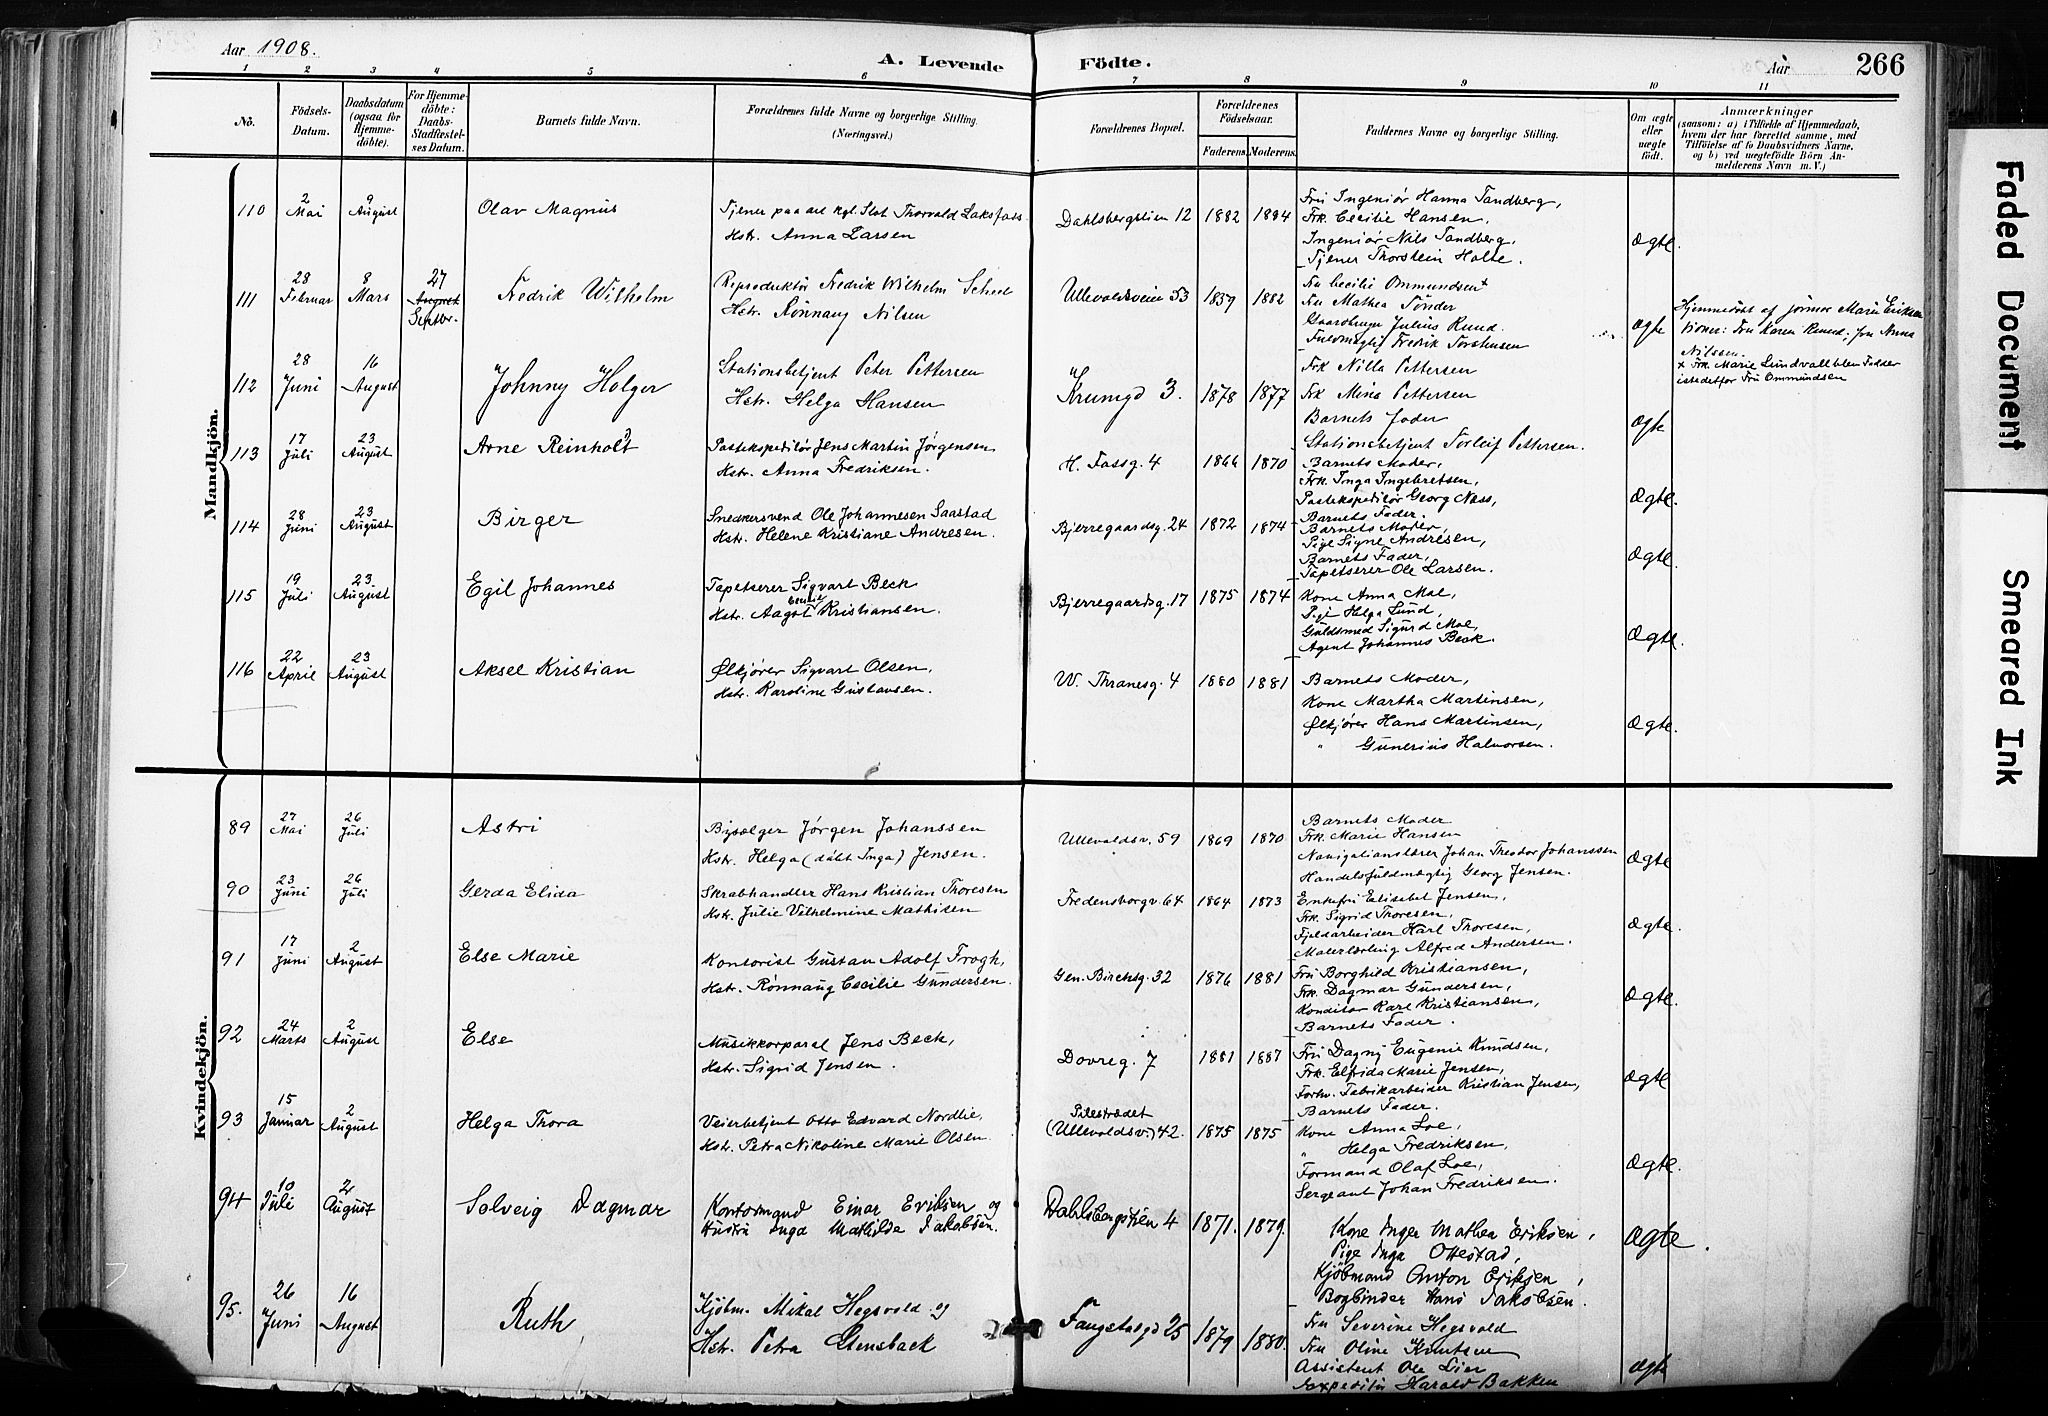 Aar 1908.
A. Levende Födte.
Aar
266
1 2 3 4 5 6 7 8 9 10 11
No.
Födsels-Datum.
Daabsdatum (ogsaa for Hjemmedöbte).
For Hjemmedöbte: Daabs-Stadfæstelses Datum.
Barnets fulde Navn.
Forældrenes fulde Navne og borgerlige Stilling. (Næringsvei.)
Forældrenes Bopæl.
Forældrenes Födselsaar.
Faderens. Moderens.
Faddernes Navne og borgerlige Stilling.
Om ægte eller uægte födt.
Anmærkninger
(saasom: a) i Tilfælde af Hjemmedaab, hvem der har forrettet samme, med Tilföielse af to Daabsvidners Navne, og b) ved uægtefödte Börn Anmelderens Navn m. V.)
Mandkjön.
110 2 Mai 9 August Olav Magnus
Tjener paa det kgl. Slot Thorvald Laksfoss
Hstr. Anna Larsen
Dahlsbergstien 12 1882 1884
Fru Ingeniør Hanna Tandberg,
Frk. Cecilie Hansen,
Ingeniør Nils Tandberg,
Tjener Thorstein Holte.
Ægte.
111 28 Februar 8 Mars 27 August Septbr. Fredrik Wilhelm
Reproduktør Fredrik Wilhelm Scheel
Hstr. Rønnaug Nilsen
Ullevoldsveien 53 1839 1882
Fru Cecilie Ommundsen +
Fru Mathea Tønder
Julius Ruud
Fuldmægtig Fredrik Torstensen
Ægte
Hjemmedöbt af jormor Marie Eriksen
Fru Karen Ruud, Fru Anna
Nilssen.
+ Frk. Marie Lundvall blev Fadder
istedetfor Fru Ommundsen
112 28 Juni 16 August Johnny Holger
Stationsbetjent Peter Pettersen
Hstr. Helga Hansen
Krumgd 3. 1878 1877
Frk Nilla Pettersen
Frk Mina Pettersen
Barnets fader
Stationsbetjent Torleif Pettersen.
Ægte
113 17 Juli 23 August Arne Reinholdt
Postekspeditør Jens Martin Jørgensen
Hstr. Anna Fredriksen.
H. Fossg. 4 1866 1870
Barnets Moder,
Frk. Inga Ingebretsen,
Postekspeditør Georg Næss,
Barnets Fader.
Ægte.
114 28 Juni 23 August Birger
Snedkersvend Ole Johannesen Saastad
Hstr. Helene Kristiane Andresen.
Bjerregaardsg. 24 1872 1874
Barnets Moder,
Pige Signe Andresen,
Barnets Fader,
Tapetserer Ole Larsen.
Ægte.
115 19 Juli 23 August Egil Johannes
Tapetserer Sigvart Beck
Hstr. Aagot Emilie Kristiansen.
Bjerregaardsg. 17 1875 1874
Kone Anna Moe,
Pige Helga Lund,
Guldsmed Sigurd Moe,
Agent Johannes Beck.
Ægte.
116 22 April 23 August Aksel Kristian
Ølkjører Sigvart Olsen,
Hstr. Karoline Gustavsen.
W. Thranesg. 4 1880 1881
Barnets Moder,
Kone Martha Martinsen,
Ølkjører Hans Martinsen,
" Gunerius Halvorsen.
Ægte.
Kvindekjön.
89 27 Mai 26 Juli Astri
Bysælger Jørgen Johanssen
Hstr. Helga (døbt Inga) Jensen.
Ullevoldsv. 59 1869 1870
Barnets Moder
Frk. Marie Hansen
Navigationslærer Johan Theodor Johanssen
Handelsfuldmægtig Georg Jensen.
Ægte
90 23 Juni 26 Juli Gerda Elida
Skrabhandler Hans Kristian Thoresen
Hstr. Julie Vilhelmine Mathisen
Fredensborgv. 64 1864 1873
Enkefru Elisabet Jensen,
Frk. Sigrid Thoresen,
Fjeldarbeider Karl Thoresen,
Malerlærling Alfred Andersen.
Ægte.
91 17 Juni 2 August Else Marie
Kontorist Gustav Adolf Trogh,
Hstr. Rønnaug Cecilie Gundersen.
Gen. Birchsg. 32 1876 1881
Fru Borghild Kristiansen,
Frk. Dagmar Gundersen,
Konditor Karl Kristiansen,
Barnets Fader.
Ægte.
92 24 Marts 2 August Else
Musikkorporal Jens Beck,
Hstr. Sigrid Jensen.
Dovreg. 7 1881 1887
Fru Dagny Eugenie Knudsen,
Frk. Elfrida Marie Jensen,
Forhv. Fabrikarbeider Kristian Jensen,
Barnets Fader.
Ægte
93 15 Januar 2 August Helga Thora
Veierbetjent Otto Edvard Nordlie,
Hstr. Petra Nikoline Marie Olsen
Pilestrædet
(Ullevoldsv.) 42. 1875 1875
Kone Anna Loe,
" Helga Fredriksen,
Formand Olaf Loe,
Sergeant Johan Fredriksen.
Ægte.
94 10 Juli 2 August Solveig Dagmar
Kontormand Einar Eriksen og
Hustru Inga Mathilde Jakobsen.
Dahlsbergstien 4 1871. 1879.
Kone Inger Mathea Eriksen,
Pige Inga Ottestad,
Kjöbmand Anton Eriksen,
Bogbinder Hans Jakobsen.
Ægte.
95. 26 Juni 16 August Ruth
Kjöbm. Mikal Hegsvold og
Hstr. Petra Stensback
25 1879 1880.
Fru Severine Hegsvold
Fru Oline Knutsen
Assistent Ole Lier
Expeditör Harald Bakken
Ægte
Faded Document
Smeared Ink